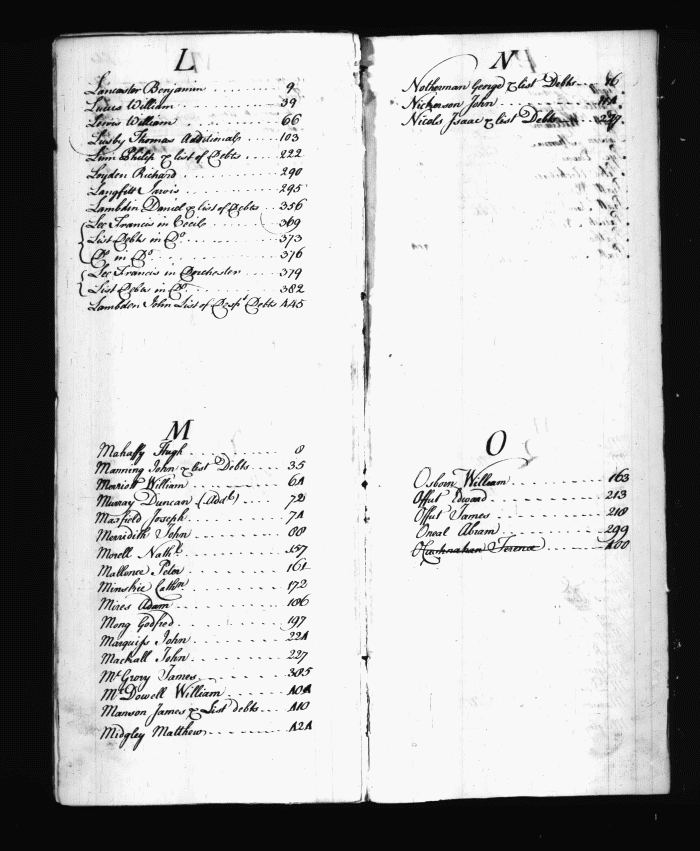 L
Lancaster Benjamin 9
Lucas William 39
Lewis William 66
Lusby Thomas Additionals 103
Lum Philip & list of Debts 222
Leyden Richard 290
Langfitt Jarvis 295
Lambdin Daniel & list of Debts 356
Lee Francis in Cecil 369
List Debts in Do 373
Do in Do 376
Lee Francis in Dorchester 379
List Debts in Do 382
Lambden John List of Desp.t Debts 445
M
Mahaffy Hugh 8
Manning John & list Debts 35
Merriott William 64
Murray Duncan (Addl) 72
Maxfield Joseph 74
Merridith John 88
Morell Nathl 157
Mallonee Peter 161
Minskie Cathn 172
Mires Adam 186
Mong Godfred 197
Marquiss John 224
Mackall John 227
Mc Grory James 385
Mc Dowell William 404
Manson James & List debts 410
Midgley Matthew 424
N
Notherman George & list Debts 46
Nickerson John
Nicols Isaac & list Debts 279
O
Osborn William 163
Offut Edward 213
Offut James 218
Oneal Abram 299
Terence 400